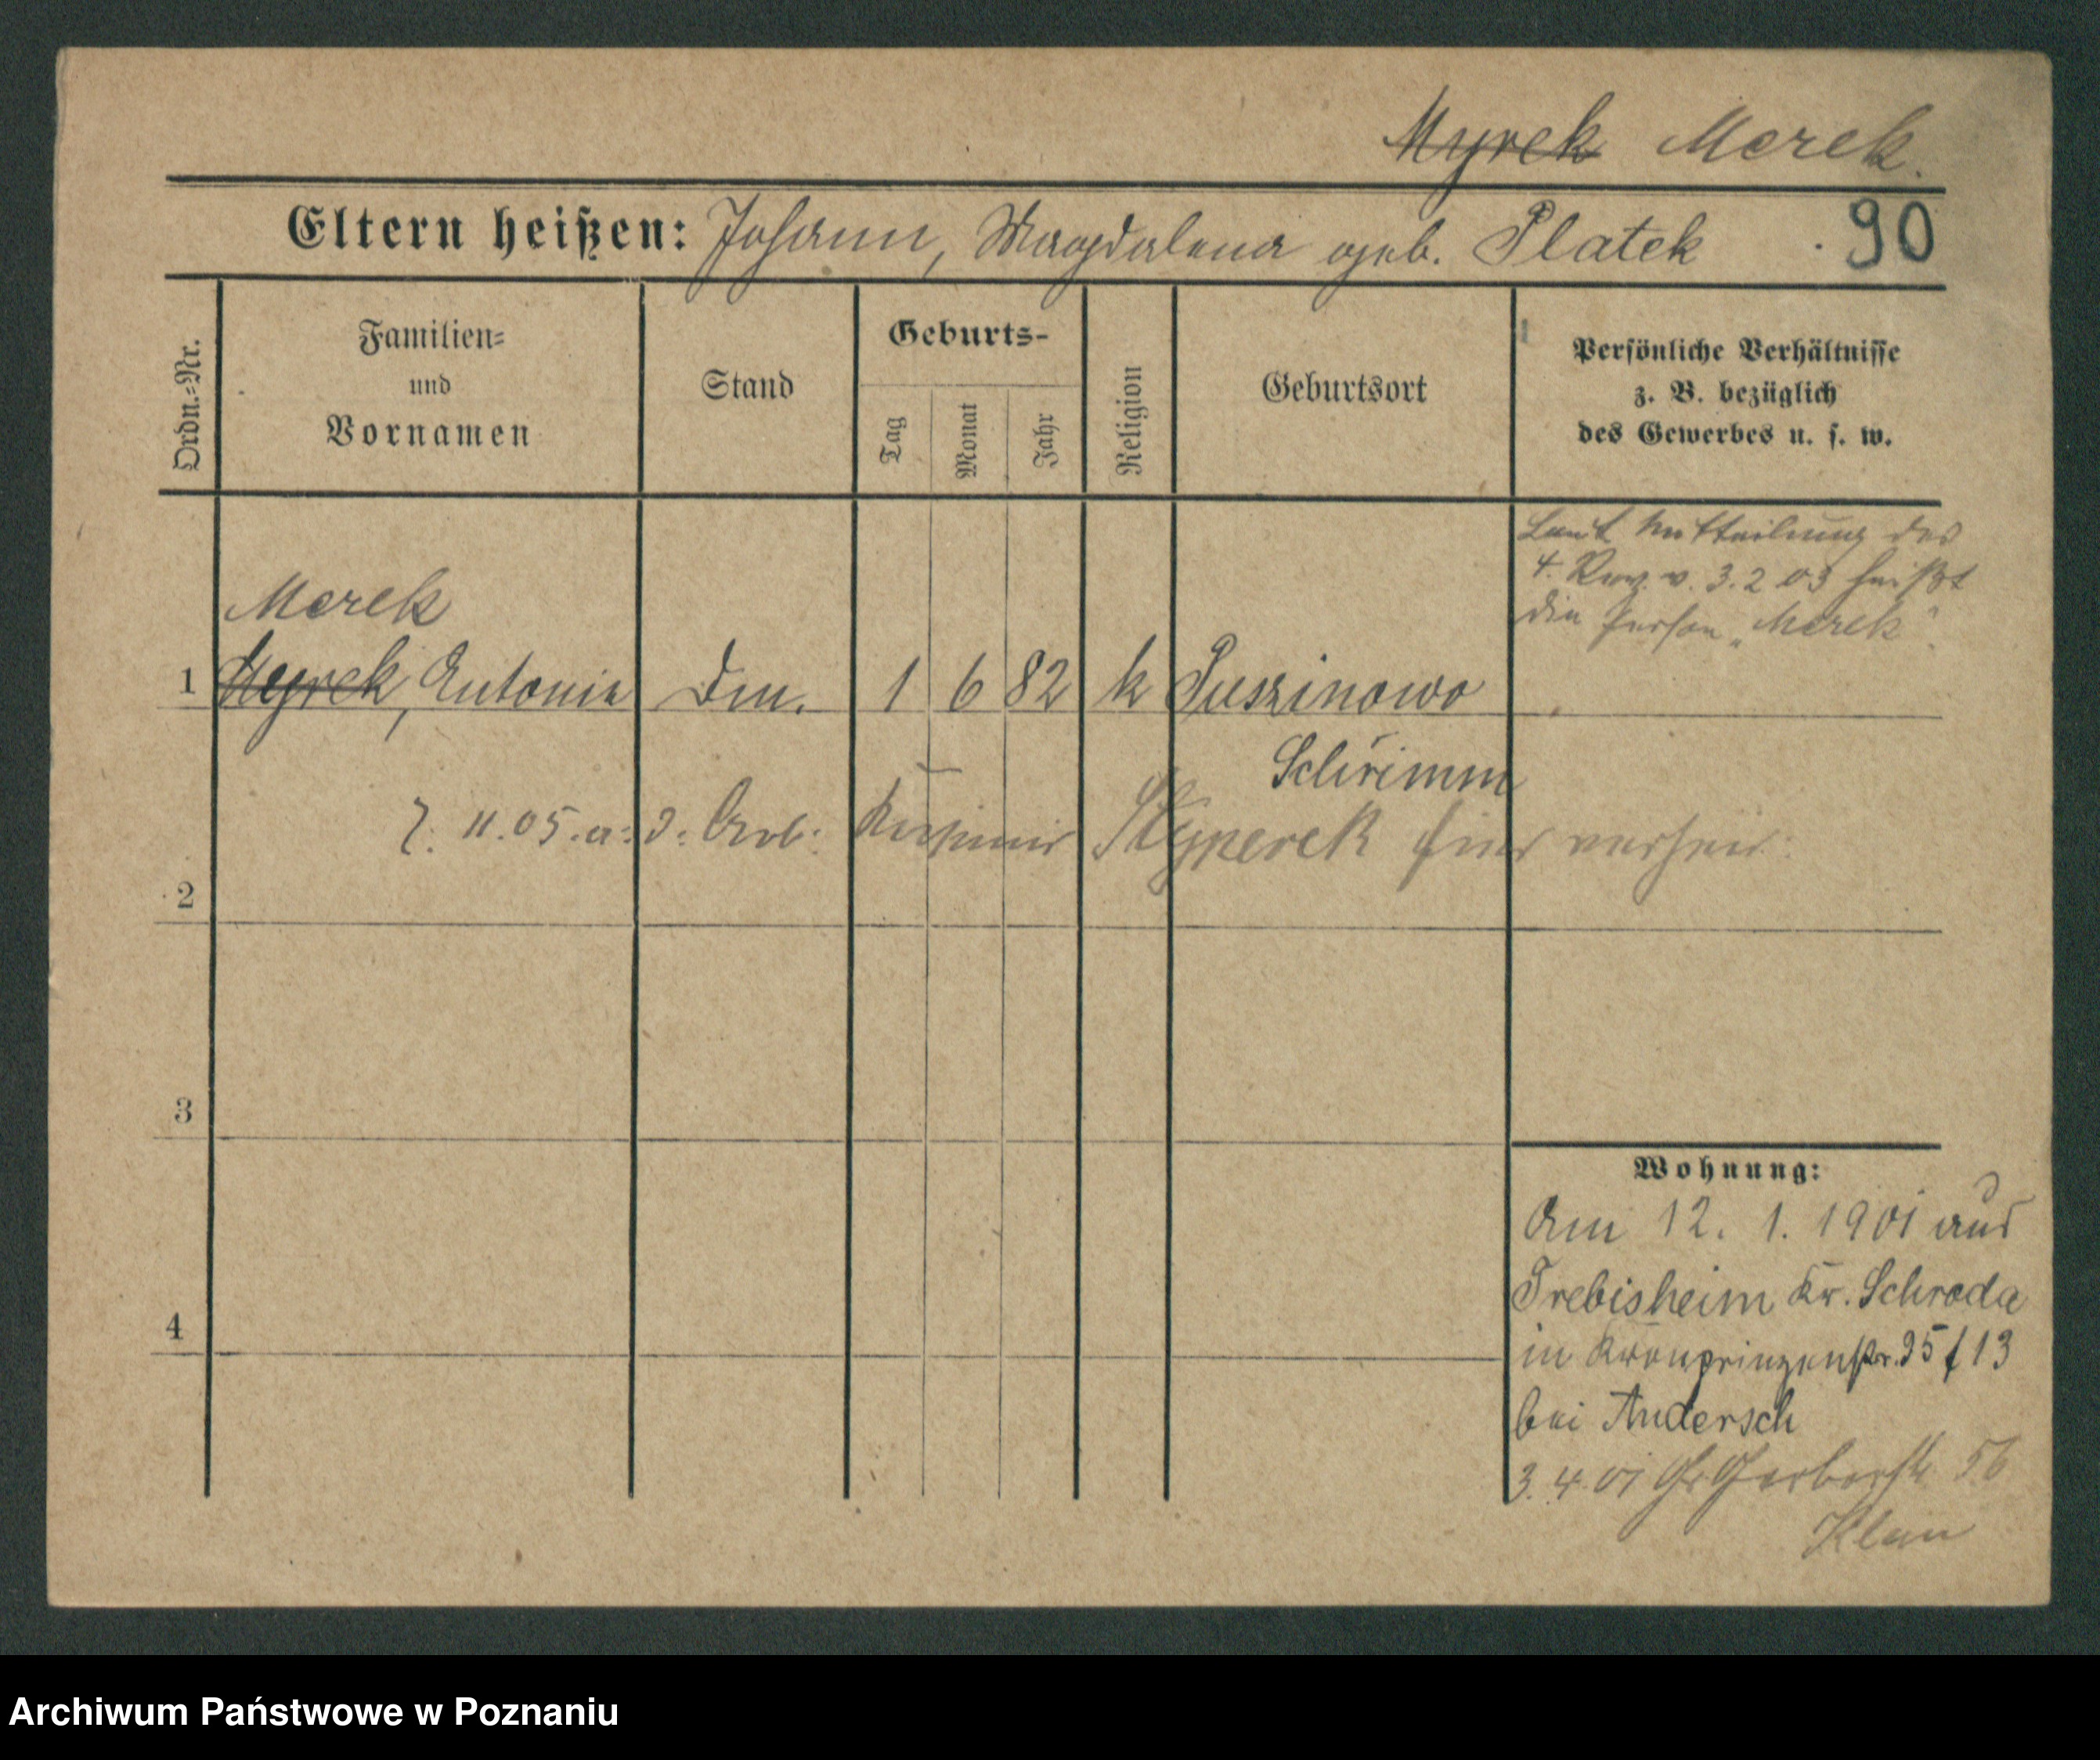 Myrek Merek.
Eltern heißen: Johann, Magdalena geb. Platek 90
Ordn.=Nr.
Familien=
und
Vornamen
Stand
Geburts-
Tag
Monat
Jahr
Religion
Geburtsort
Persönliche Verhältnisse
z. B. bezüglich
des Gewerbes u. s. w.
Laut Mitteilung des
4. Rev. v. 3. 2 03 heißt
die Person „Merek"
Merek
1 Myrek, Antonie Dm. 1 6 82 k Puszinowo
Schrimm
7. 11. 05. a. d. Arb. Kasimir Skyperek hier verheir.
2
3
4
Wohnung:
Am 12. 1. 1901 aus
Trebisheim Kr. Schroda
in Kronprinzenstr. 95 f 13
bei Andersch
3. 4. 01 Gr Gerberstr 56
Klein
Archiwum Państwowe w Poznaniu